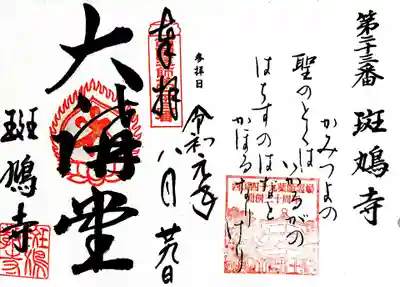 第二十三番 斑鳩寺
かみつよの
聖のとくは いかるがの
はちすのはなと
かほるなりけり
参拝日
令和元年
八月 廿九日
奉拝
大講堂
斑鳩寺